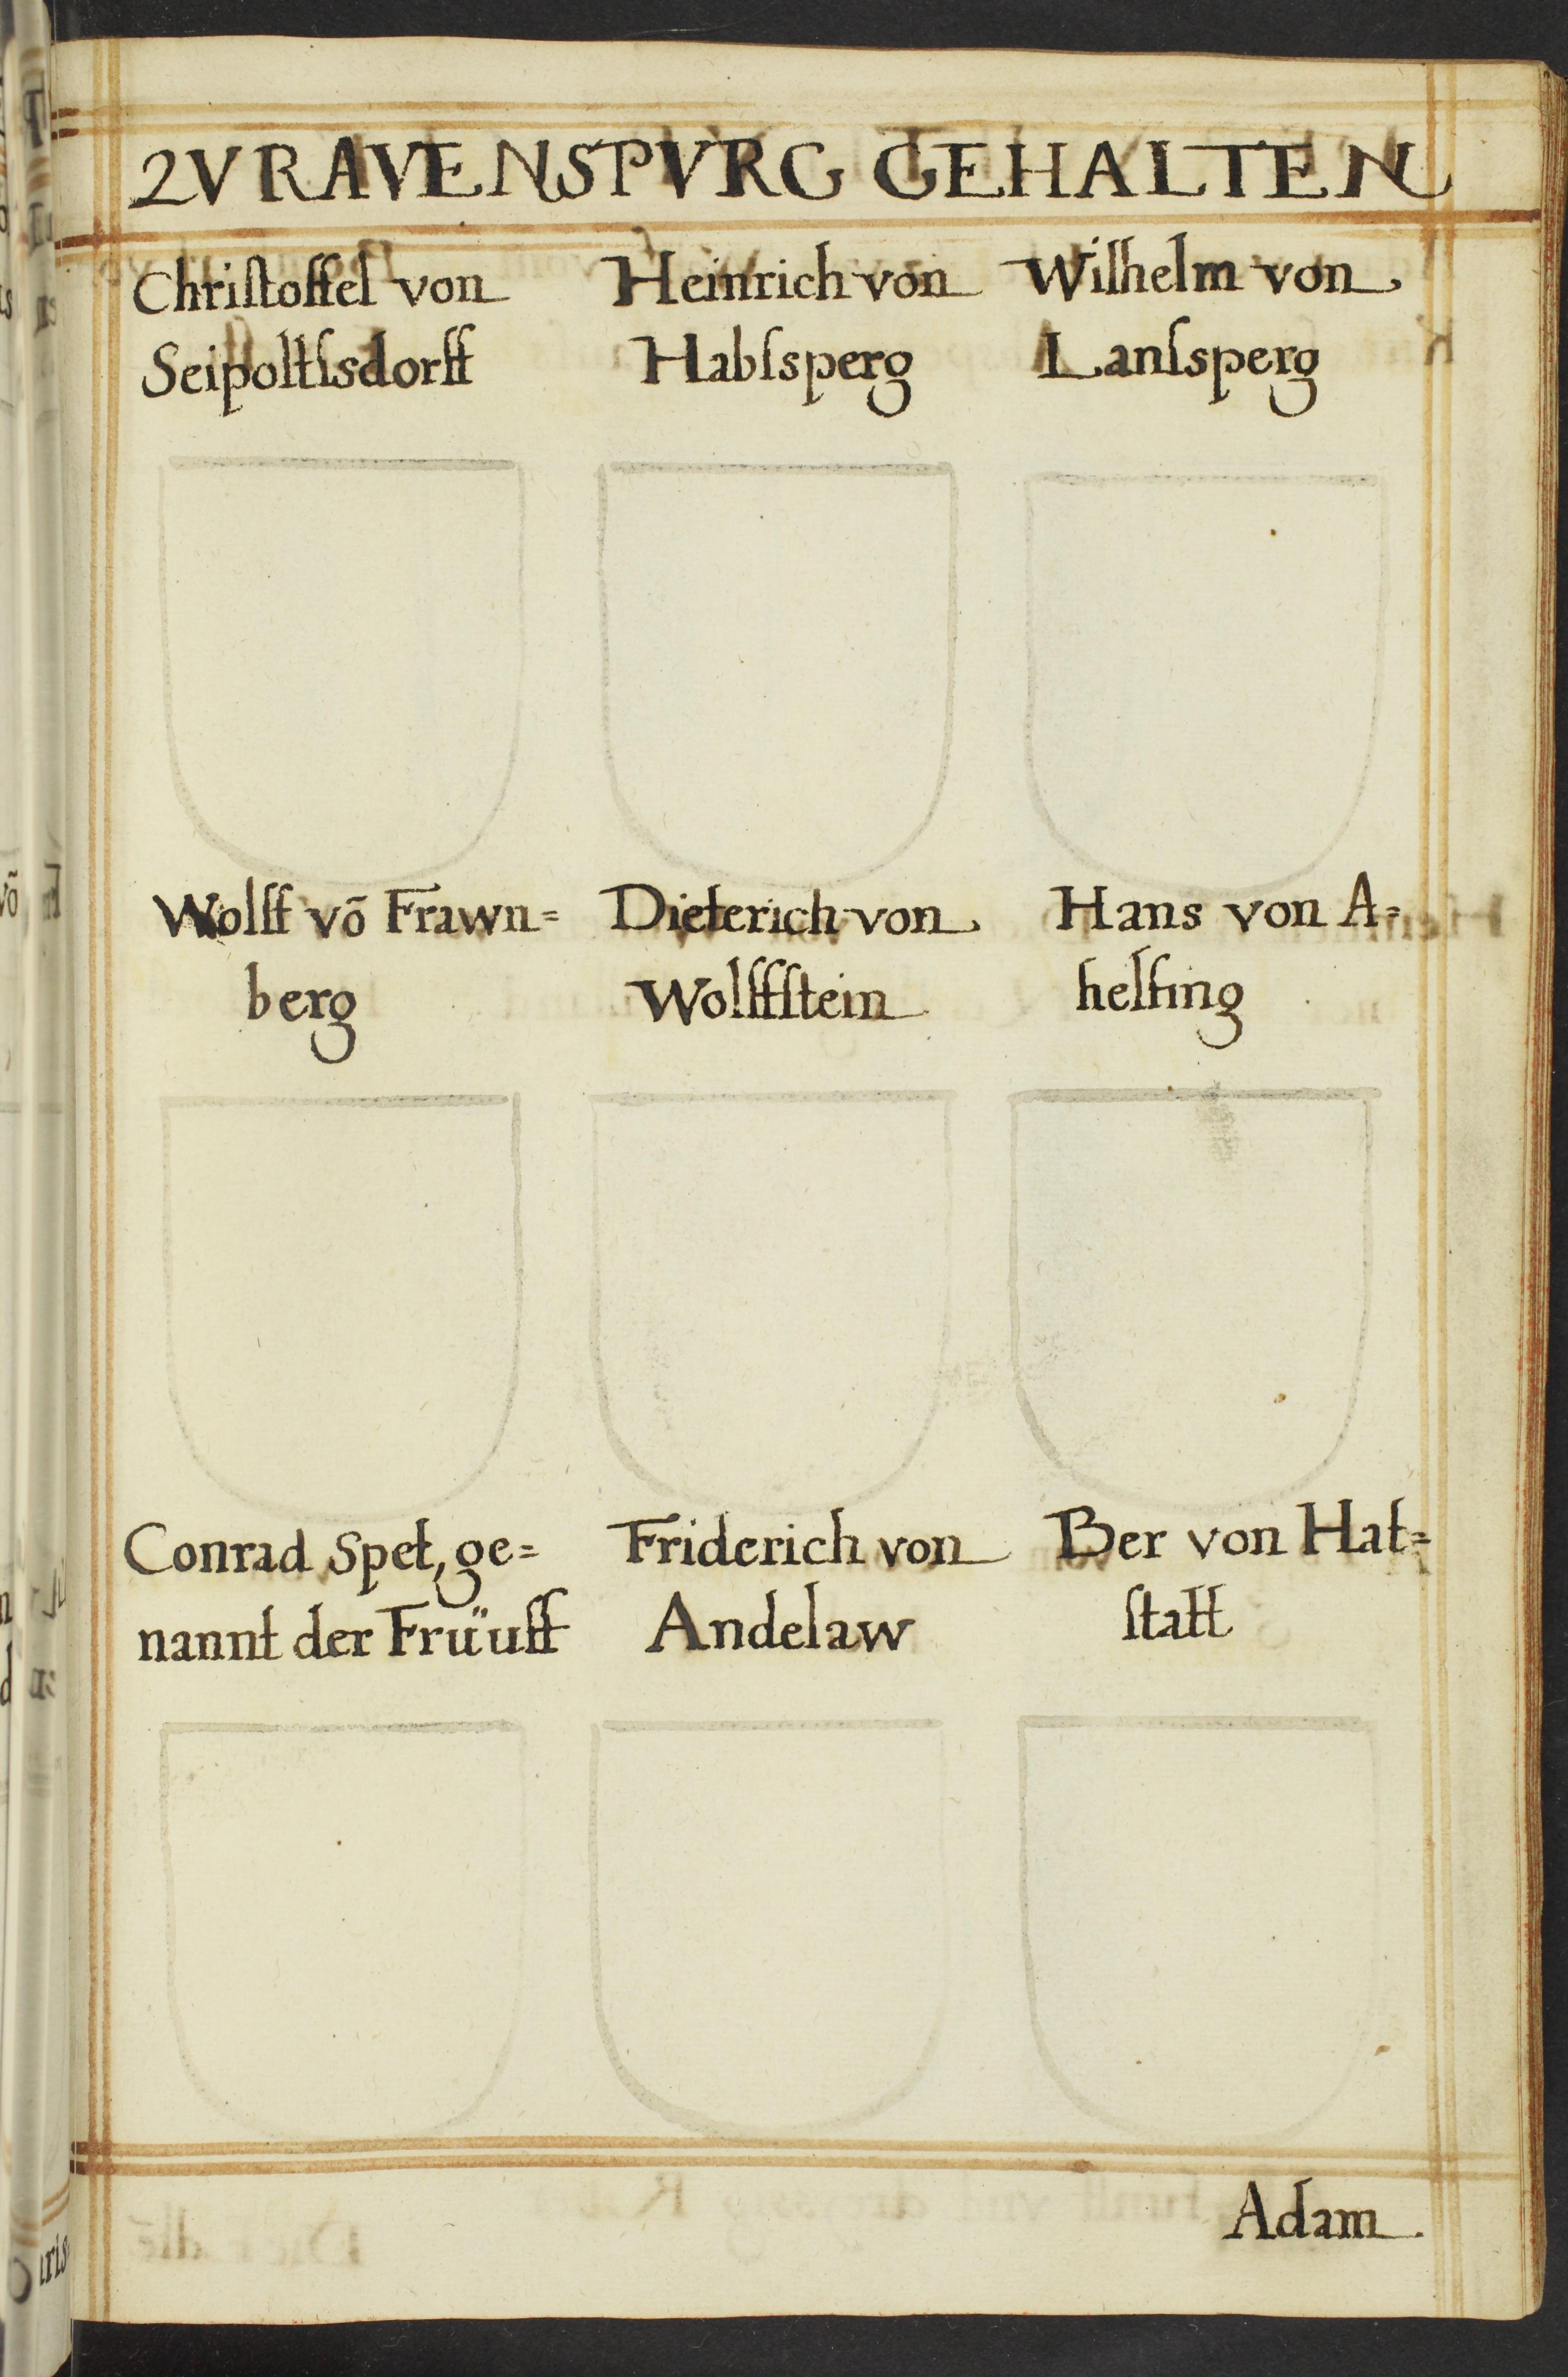 ZV RAVENSPVRG GEHALTEN
Chriſtoffel von
Seipoltſsdorff
Heinrich von
Habſsperg
Wilhelm von
Lanſsperg
Wolff võ Frawn=
berg
Dieterich von
Wolffſtein
Hans von A=
helfing
Conrad Spet, ge=
nannt der Früuff
Friderich von
Andelaw
Ber von Hat=
ſtatt
Adam